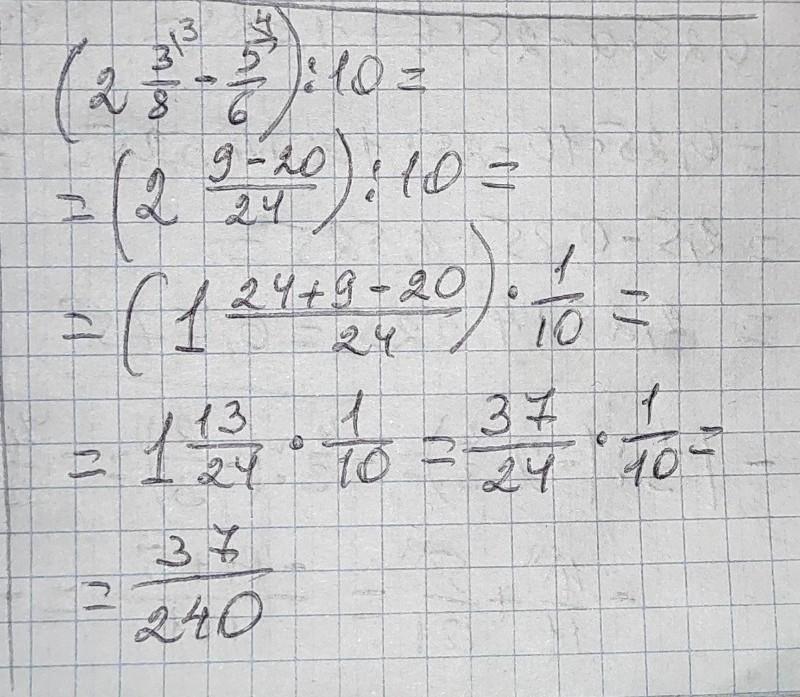 (2 3/8 ^3 - 5/6 ^4) : 10 =
= (2 (9-20)/24) : 10 =
= (1 (24+9-20)/24) · 1/10 =
= 1 13/24 · 1/10 = 37/24 · 1/10 =
= 37/240